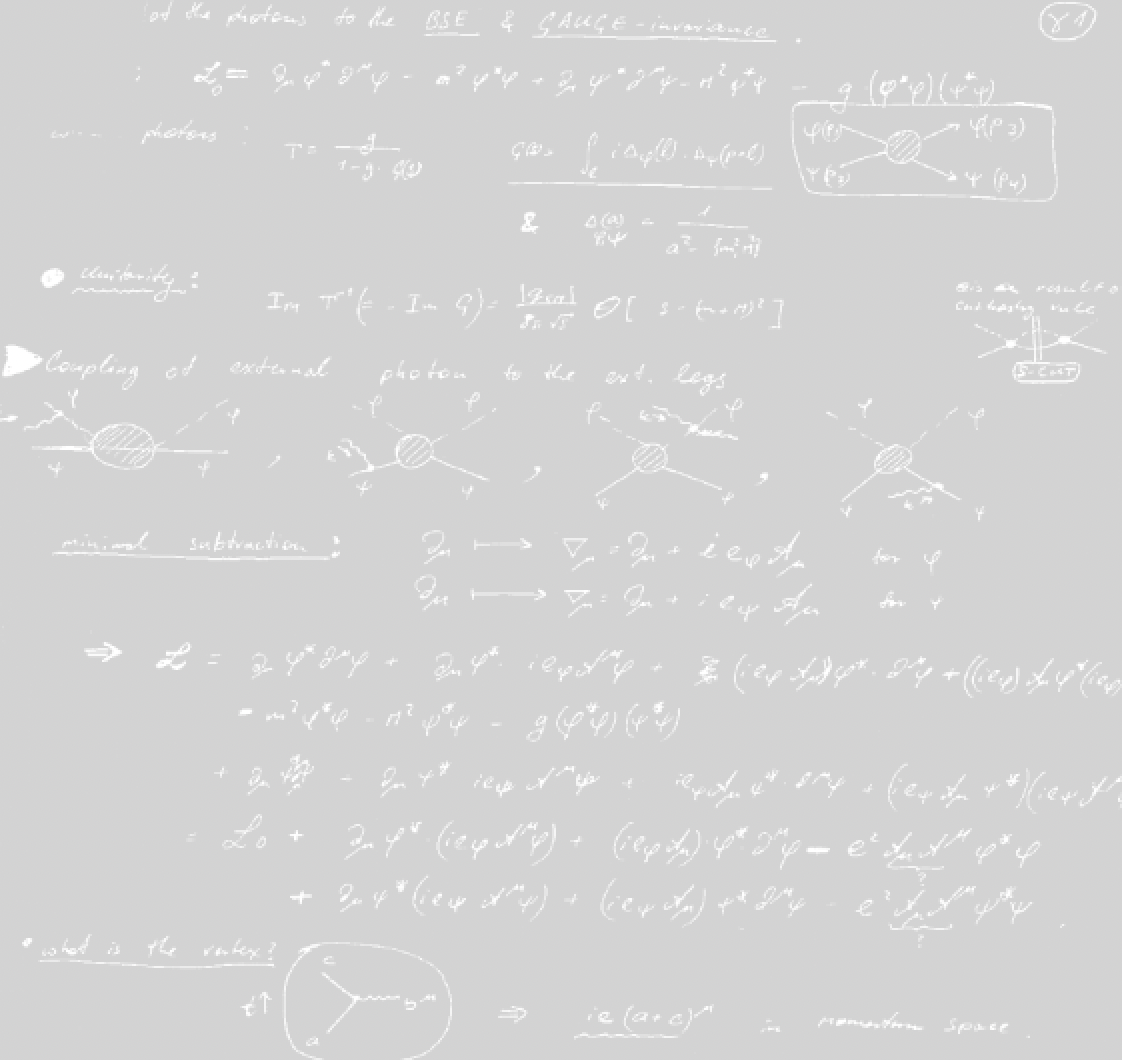 of the photons to the BSE & GAUGE-invariance.
γ1
: ℒ₀ = ∂μ φ* ∂^μ φ - m² φ*φ + ∂μ ψ* ∂^μ ψ - M² ψ*ψ - g (φ*φ)(ψ*ψ)
photons: T = g / (1 - g · G(s))
G(s) = ∫_ℓ i Δφ(ℓ) · Δψ(p-ℓ)
φ(p1) φ(p3)
ψ(p2) ψ(p4)
& Δ(a) φ,ψ = 1 / (a² - {m², M²})
unitarity:
Im T⁻¹ (= - Im G) = |q_cm| / 8π√s Θ[ s - (m+M)² ]
result
rule
S-CUT
Coupling of external photon to the ext. legs
φ φ ψ ψ , φ φ ψ ψ k , φ φ ψ ψ k , φ φ ψ ψ k
minimal subtraction:
∂μ ⟼ ∇μ = ∂μ + i eφ 𝒜μ for φ
∂μ ⟼ ∇μ = ∂μ + i eψ 𝒜μ for ψ
⇒ ℒ = ∂μ φ* ∂^μ φ + ∂μ φ* · i eφ 𝒜^μ φ + (i eφ 𝒜μ) φ* · ∂^μ φ + ((i eφ) 𝒜μ φ* (i eφ
- m² φ*φ - M² ψ*ψ - g (φ*φ)(ψ*ψ)
∂μ ψ* i eψ 𝒜^μ ψ + i eψ 𝒜μ ψ* · ∂^μ ψ + (i eψ 𝒜μ ψ*)(i eψ 𝒜^μ
= ℒ₀ + ∂μ φ* · (i eφ 𝒜^μ φ) + (i eφ 𝒜μ) · φ* ∂^μ φ - e² 𝒜μ 𝒜^μ φ*φ
?
+ ∂μ ψ* (i eψ 𝒜^μ ψ) + (i eψ 𝒜μ) ψ* ∂^μ ψ - e² 𝒜μ 𝒜^μ ψ*ψ
?
• what is the vertex?
t↑ c a b μ ⇒ ie (a+c)^μ in momentum space.